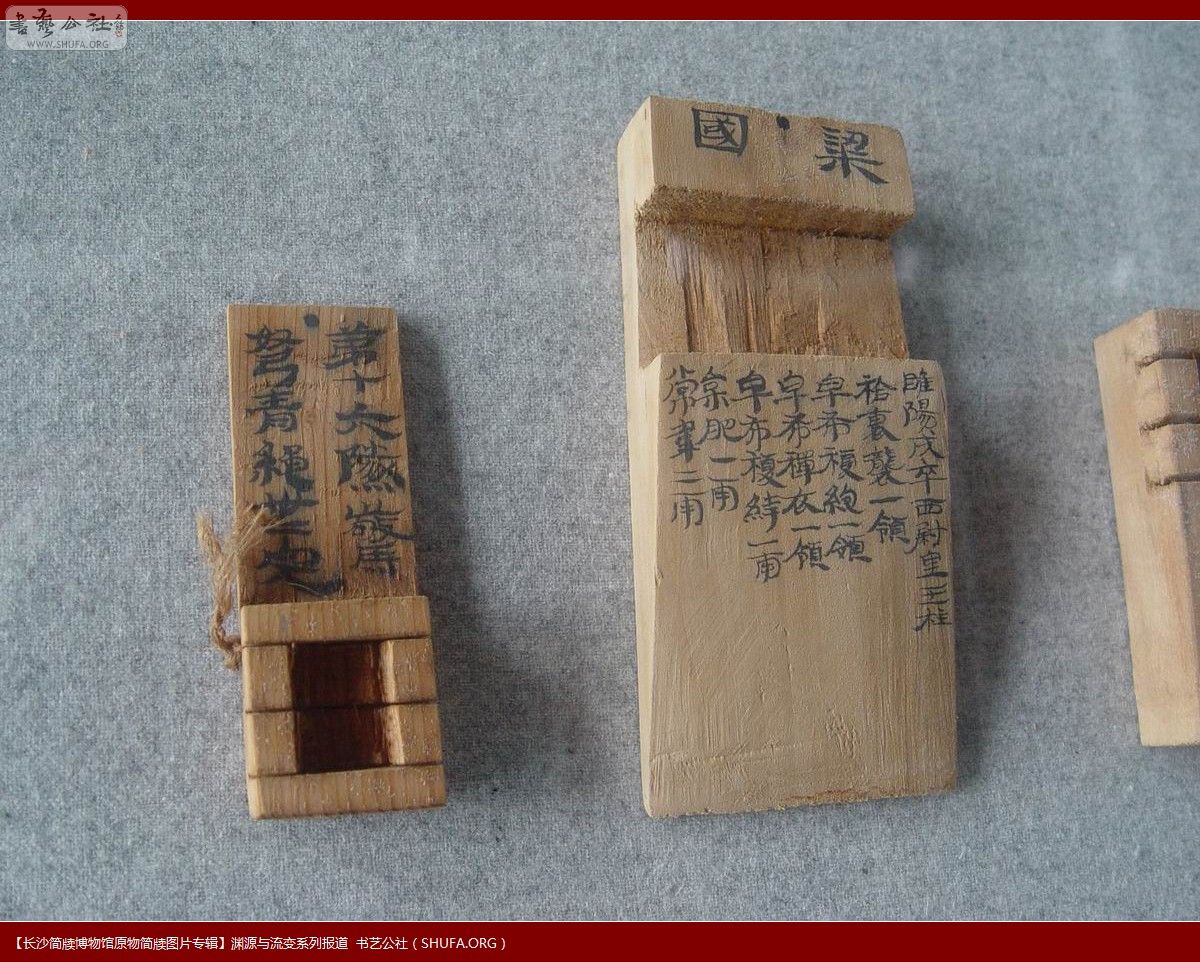 書藝公社
WWW.SHUFA.ORG
第十六隧歲馬
弩弓青繩卅二完
梁·國
睢陽戍卒西尉里王柱
袷裏襲一領
皁布複袍一領
皁布襌衣一領
皁布複絝一兩
枲肥一兩
常韋二兩
【长沙简牍博物馆原物简牍图片专辑】渊源与流变系列报道 书艺公社（SHUFA.ORG）